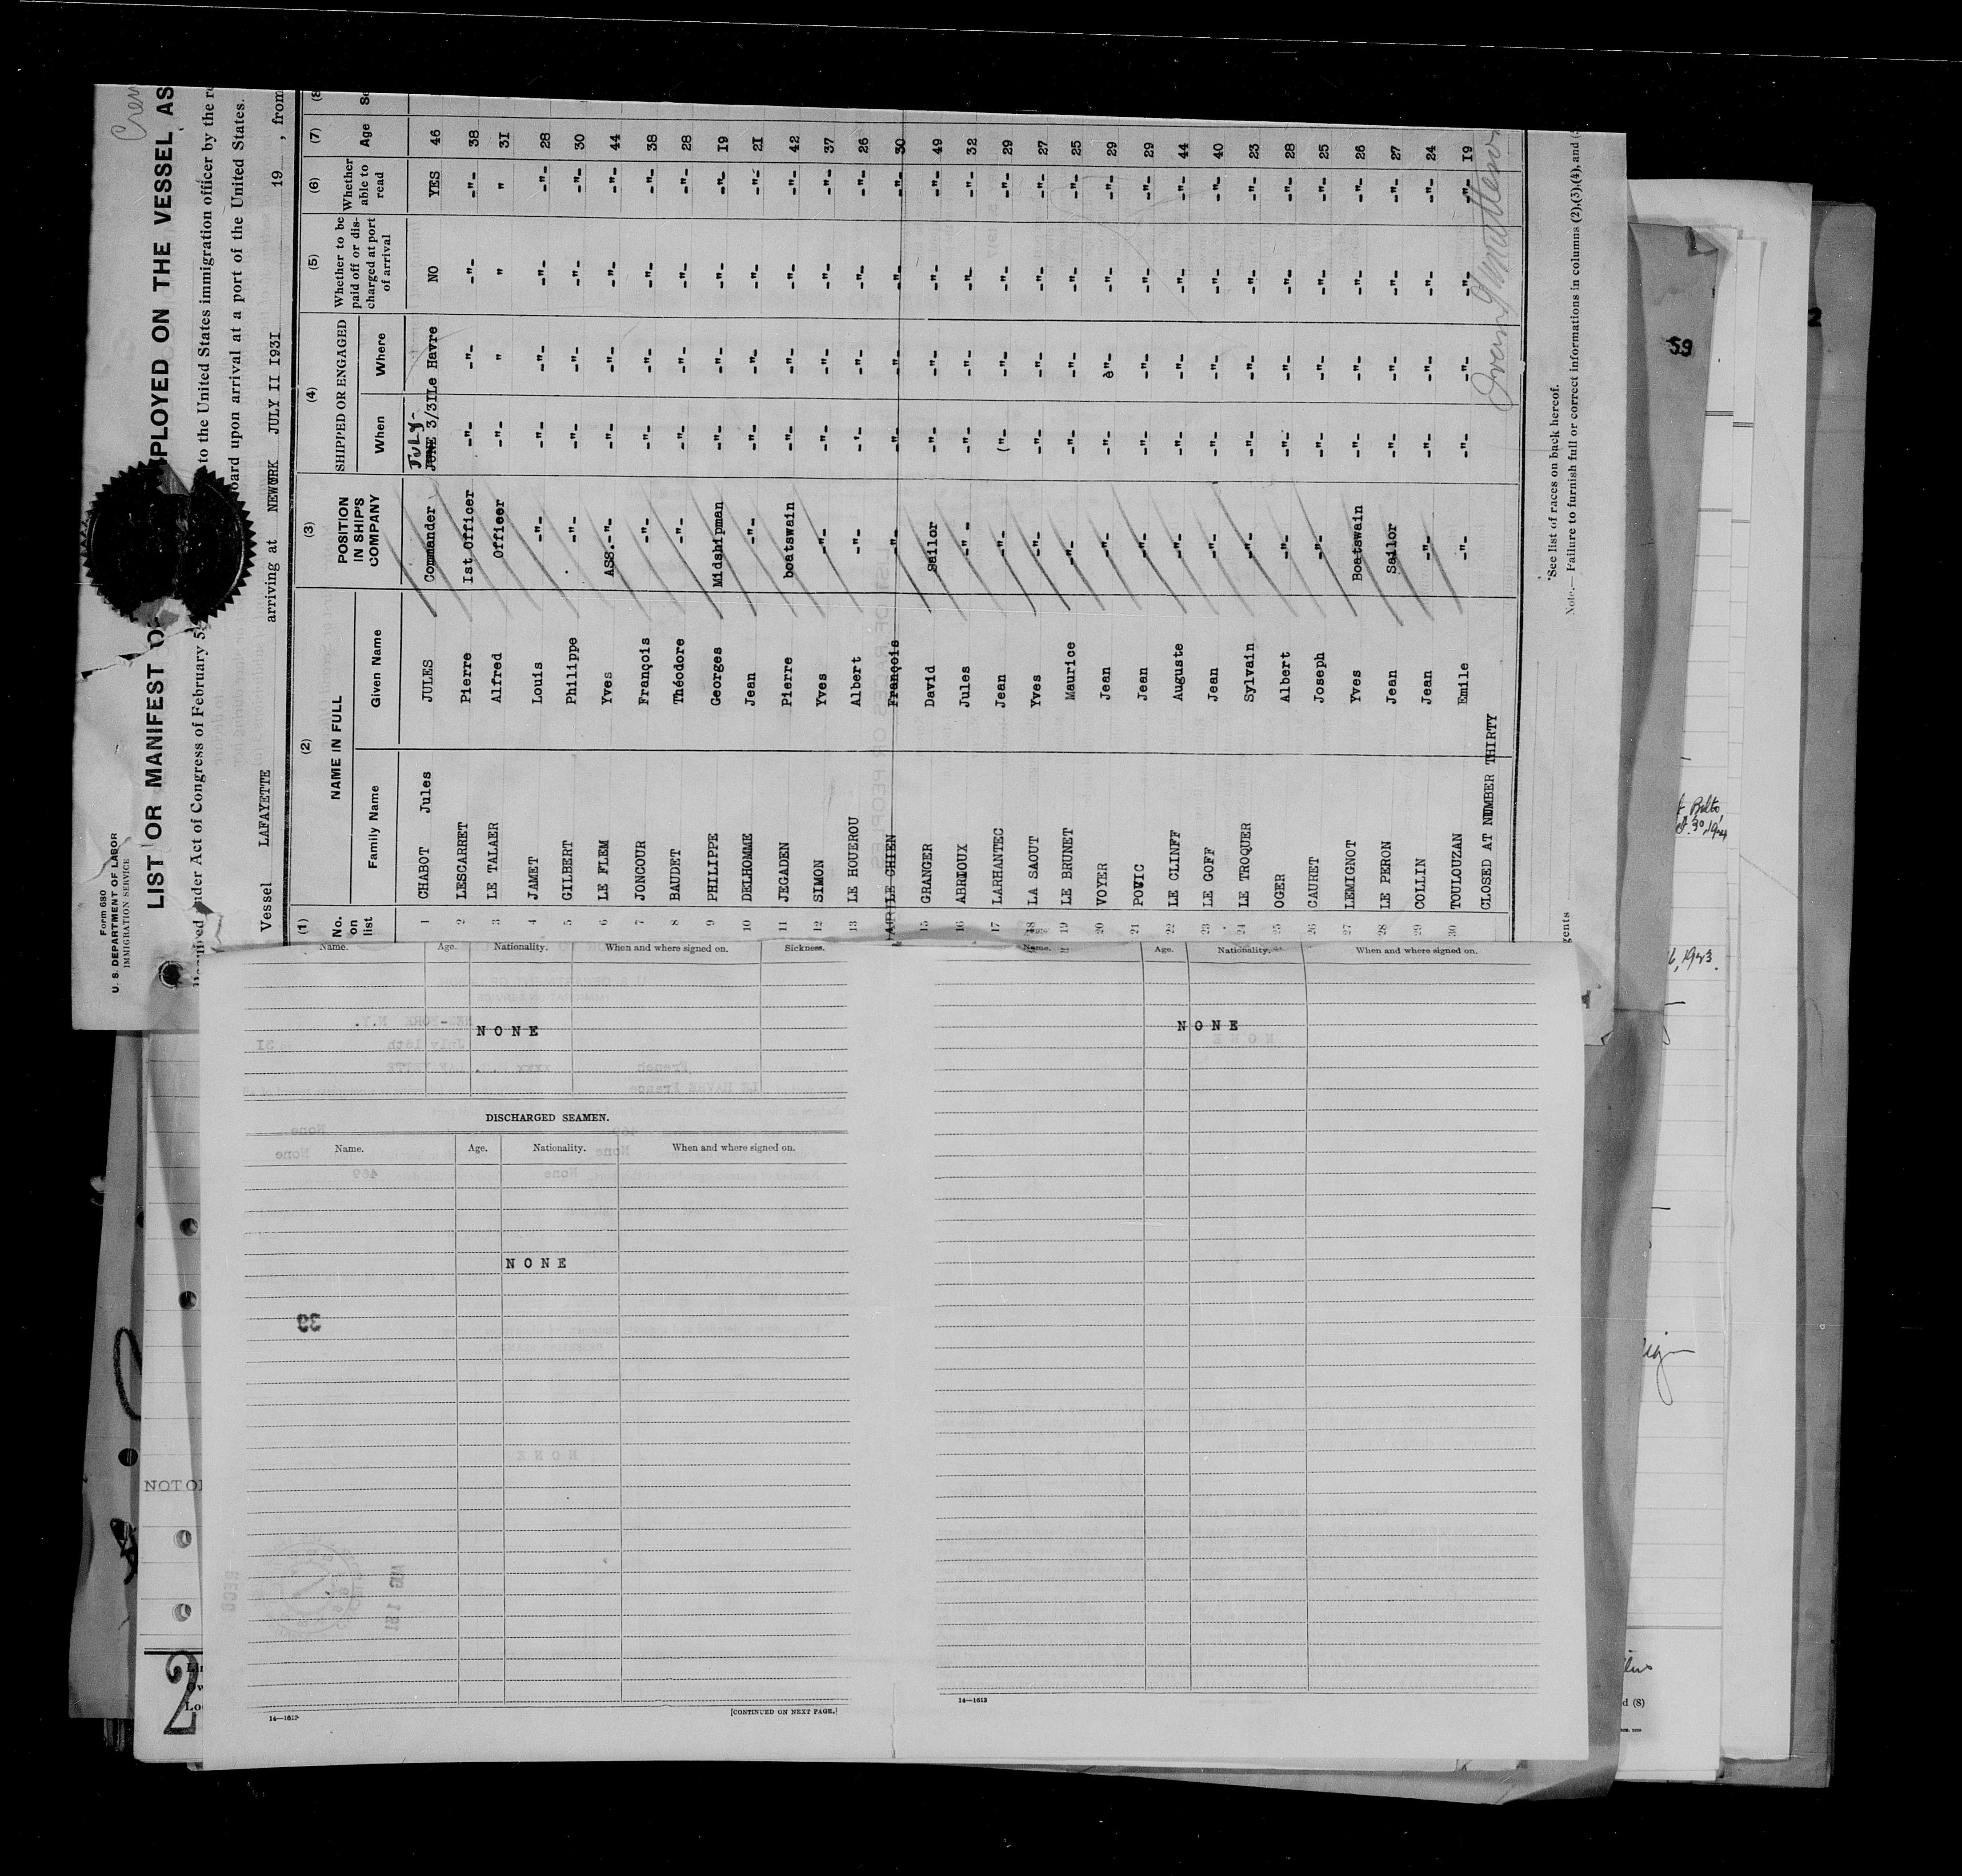 Form 680
U. S. DEPARTMENT OF LABOR
IMMIGRATION SERVICE
LIST OR MANIFEST OF PLOYED ON THE VESSEL AS
Required under Act of Congress of February 5 to the United States immigration officer by the
oard upon arrival at a port of the United States.
Vessel LAFAYETTE arriving at NEWORK JULY II I93I 19 , from
(1) (2) (3) (4) (5) (6) (7) (8
No. on list NAME IN FULL POSITION IN SHIP'S COMPANY SHIPPED OR ENGAGED Whether to be paid off or discharged at port of arrival Whether able to read Age
Family Name Given Name When Where
1 CHABOT Jules JULES Commander JULY- JUNE 3/3I Le Havre NO YES 46
2 LESCARRET Pierre Ist Officer -"- -"- -"- -"- 38
3 LE TALAER Alfred Officer -"- " " " 3I
4 JAMET Louis -"- -"- -"- -"- -"- 28
5 GILBERT Philippe -"- -"- -"- -"- -"- 30
6 LE FLEM Yves ASS.-"- -"- -"- -"- -"- 44
7 JONCOUR François -"- -"- -"- -"- -"- 38
8 BAUDET Théodore -"- -"- -"- -"- -"- 28
9 PHILIPPE Georges Midshipman -"- -"- -"- -"- I9
10 DELHOMME Jean -"- -"- -"- -"- -"- 2I
11 JEGADEN Pierre boatswain -"- -"- -"- -"- 42
12 SIMON Yves -"- -"- -"- -"- -"- 37
13 LE HOUEROU Albert -"- -'- -"- -"- -"- 26
LE CHIEN François -"- -"- -"- -"- -"- 30
15 GRANGER David Sailor -"- -"- -"- -"- 49
16 ABRIOUX Jules -"- -"- -"- -"- -"- 32
17 LARHANTEC Jean -"- (- -"- -"- -"- 29
18 LA SAOUT Yves -"- -"- -"- -"- -"- 27
19 LE BRUNET Maurice -"- -"- -"- -"- -"- 25
20 VOYER Jean -"- -"- è"- -"- -"- 29
21 POVIC Jean -"- -"- -"- -"- -"- 29
22 LE CLINFF Auguste -"- -"- -"- -"- -"- 44
23 LE GOFF Jean -"- -"- -"- -"- -"- 40
24 LE TROQUER Sylvain -"- -"- -"- -"- -"- 23
25 OGER Albert -"- -"- -"- -"- -"- 28
26 CAURET Joseph -"- -"- -"- -"- -"- 25
27 LEMIGNOT Yves Boatswain -"- -"- -"- -"- 26
28 LE PERON Jean Sailor -"- -"- -"- -"- 27
29 COLLIN Jean -"- -"- -"- -"- -"- 24
30 TOULOUZAN Emile -"- -"- -"- -"- -"- I9
CLOSED AT NUMBER THIRTY
*See list of races on back hereof.
Note.— Failure to furnish full or correct informations in columns (2),(3),(4), and
gents
Name. Age. Nationality. When and where signed on. Sickness.
NONE
DISCHARGED SEAMEN.
Name. Age. Nationality. When and where signed on.
NONE
33
14—1613
[CONTINUED ON NEXT PAGE.]
Name. Age. Nationality. When and where signed on.
NONE
14—1613
59
2
Balto,
6, 1943.
NOT
2
d (8)